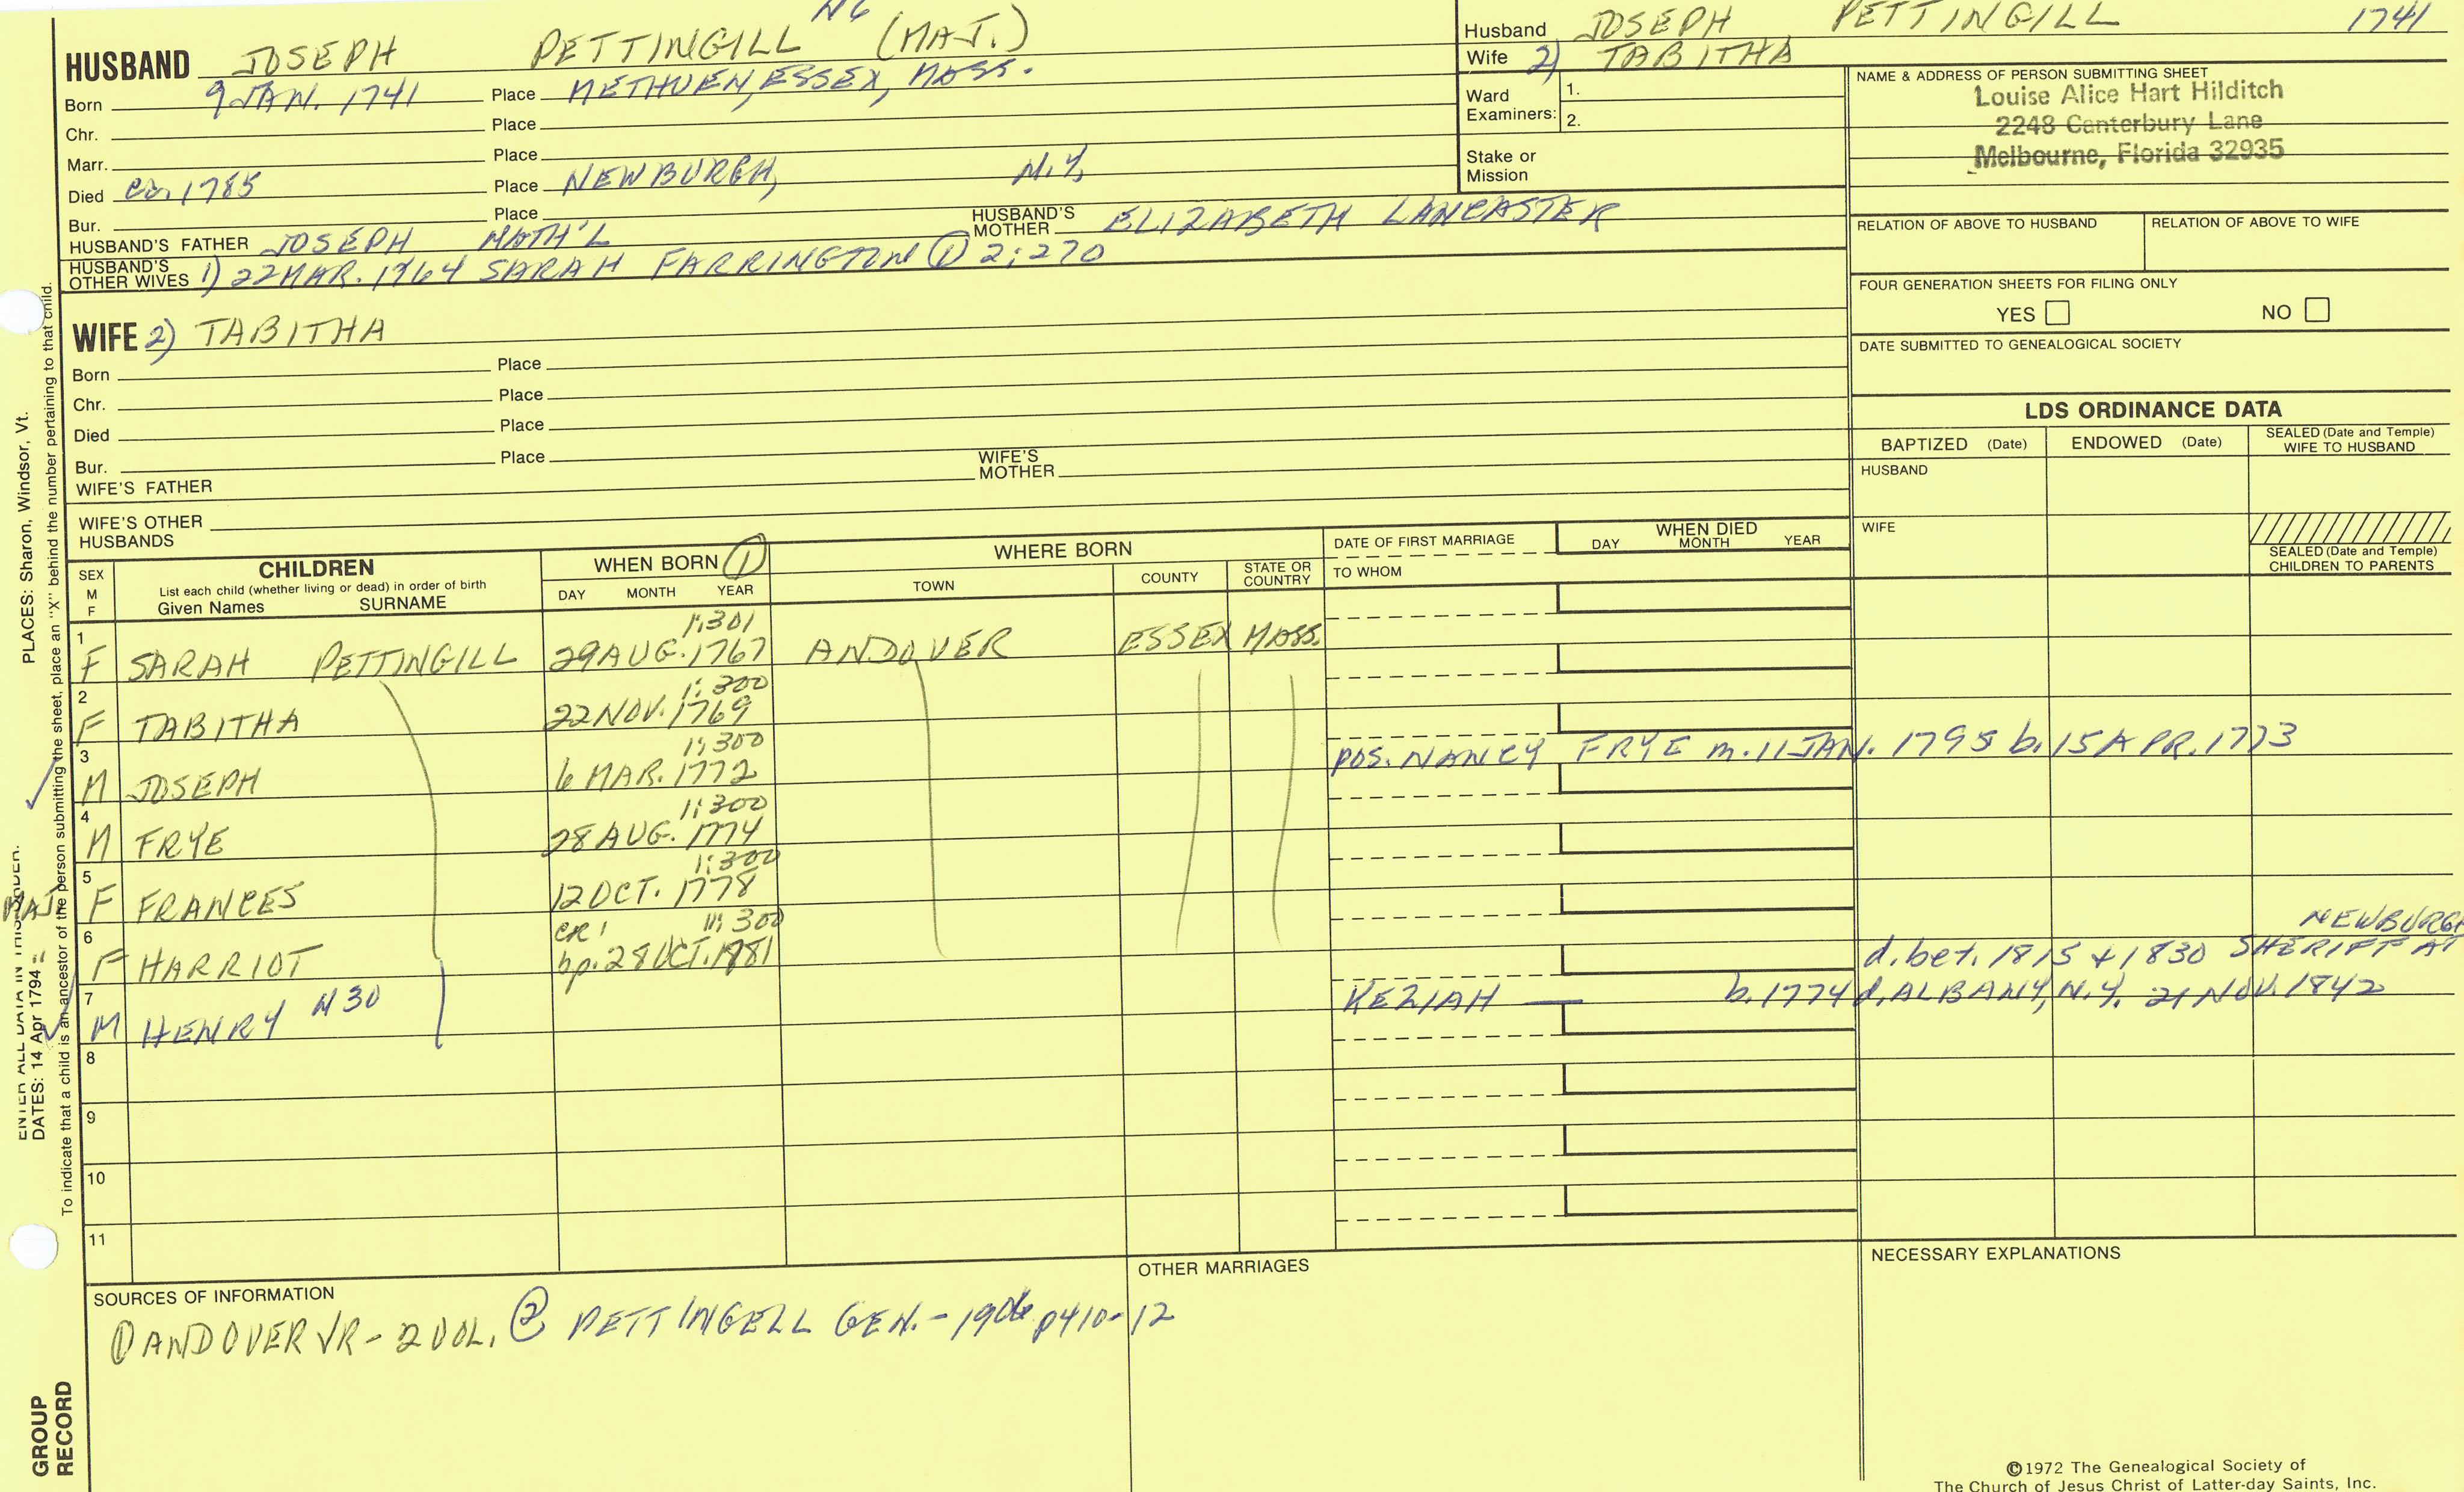 N6
HUSBAND JOSEPH PETTINGILL (MAJ.)
Born 9 JAN. 1741 Place METHUEN, ESSEX, MASS.
Chr. Place
Marr. Place
Died ca. 1785 Place NEWBURGH, N.Y.
Bur. Place
HUSBAND'S FATHER JOSEPH NATH'L HUSBAND'S MOTHER ELIZABETH LANCASTER
HUSBAND'S OTHER WIVES 1) 22 MAR. 1764 SARAH FARRINGTON ① 2:270
Husband JOSEPH PETTINGILL 1741
Wife 2) TABITHA
Ward Examiners: 1.
2.
Stake or Mission
NAME & ADDRESS OF PERSON SUBMITTING SHEET
Louise Alice Hart Hilditch
2248 Canterbury Lane
Melbourne, Florida 32935
RELATION OF ABOVE TO HUSBAND RELATION OF ABOVE TO WIFE
FOUR GENERATION SHEETS FOR FILING ONLY
YES NO
DATE SUBMITTED TO GENEALOGICAL SOCIETY
WIFE 2) TABITHA
Born Place
Chr. Place
Died Place
Bur. Place
WIFE'S FATHER WIFE'S MOTHER
WIFE'S OTHER HUSBANDS
LDS ORDINANCE DATA
BAPTIZED (Date) ENDOWED (Date) SEALED (Date and Temple) WIFE TO HUSBAND
HUSBAND
WIFE
SEALED (Date and Temple) CHILDREN TO PARENTS
SEX M F
CHILDREN
List each child (whether living or dead) in order of birth
Given Names SURNAME
WHEN BORN ①
DAY MONTH YEAR
WHERE BORN
TOWN COUNTY STATE OR COUNTRY
DATE OF FIRST MARRIAGE
TO WHOM
WHEN DIED
DAY MONTH YEAR
1:301
1 F SARAH PETTINGILL 29 AUG. 1767 ANDOVER ESSEX MASS.
1:300
2 F TABITHA 22 NOV. 1769
1:300
3 M JOSEPH 6 MAR. 1772 POS. NANCY FRYE m. 11 JAN. 1795 b. 15 APR. 1773
1:300
4 M FRYE 28 AUG. 1774
1:300
5 F FRANCES 12 OCT. 1778
CR1 1:300
6 F HARRIOT bp. 28 OCT. 1781
NEWBURGH
d. bet. 1815 + 1830 SHERIFF AT
7 M HENRY N30 KEZIAH — b. 1774 d. ALBANY, N.Y. 21 NOV. 1842
8
9
10
11
SOURCES OF INFORMATION
① ANDOVER VR - 2 VOL. ② PETTINGELL GEN. - 1906 p410-12
OTHER MARRIAGES
NECESSARY EXPLANATIONS
©1972 The Genealogical Society of
The Church of Jesus Christ of Latter-day Saints, Inc.
PLACES: Sharon, Windsor, Vt.
To indicate that a child is an ancestor of the person submitting the sheet, place an "X" behind the number pertaining to that child.
ENTER ALL DATA IN THIS ORDER:
DATES: 14 Apr 1794
MAJ.
GROUP
RECORD